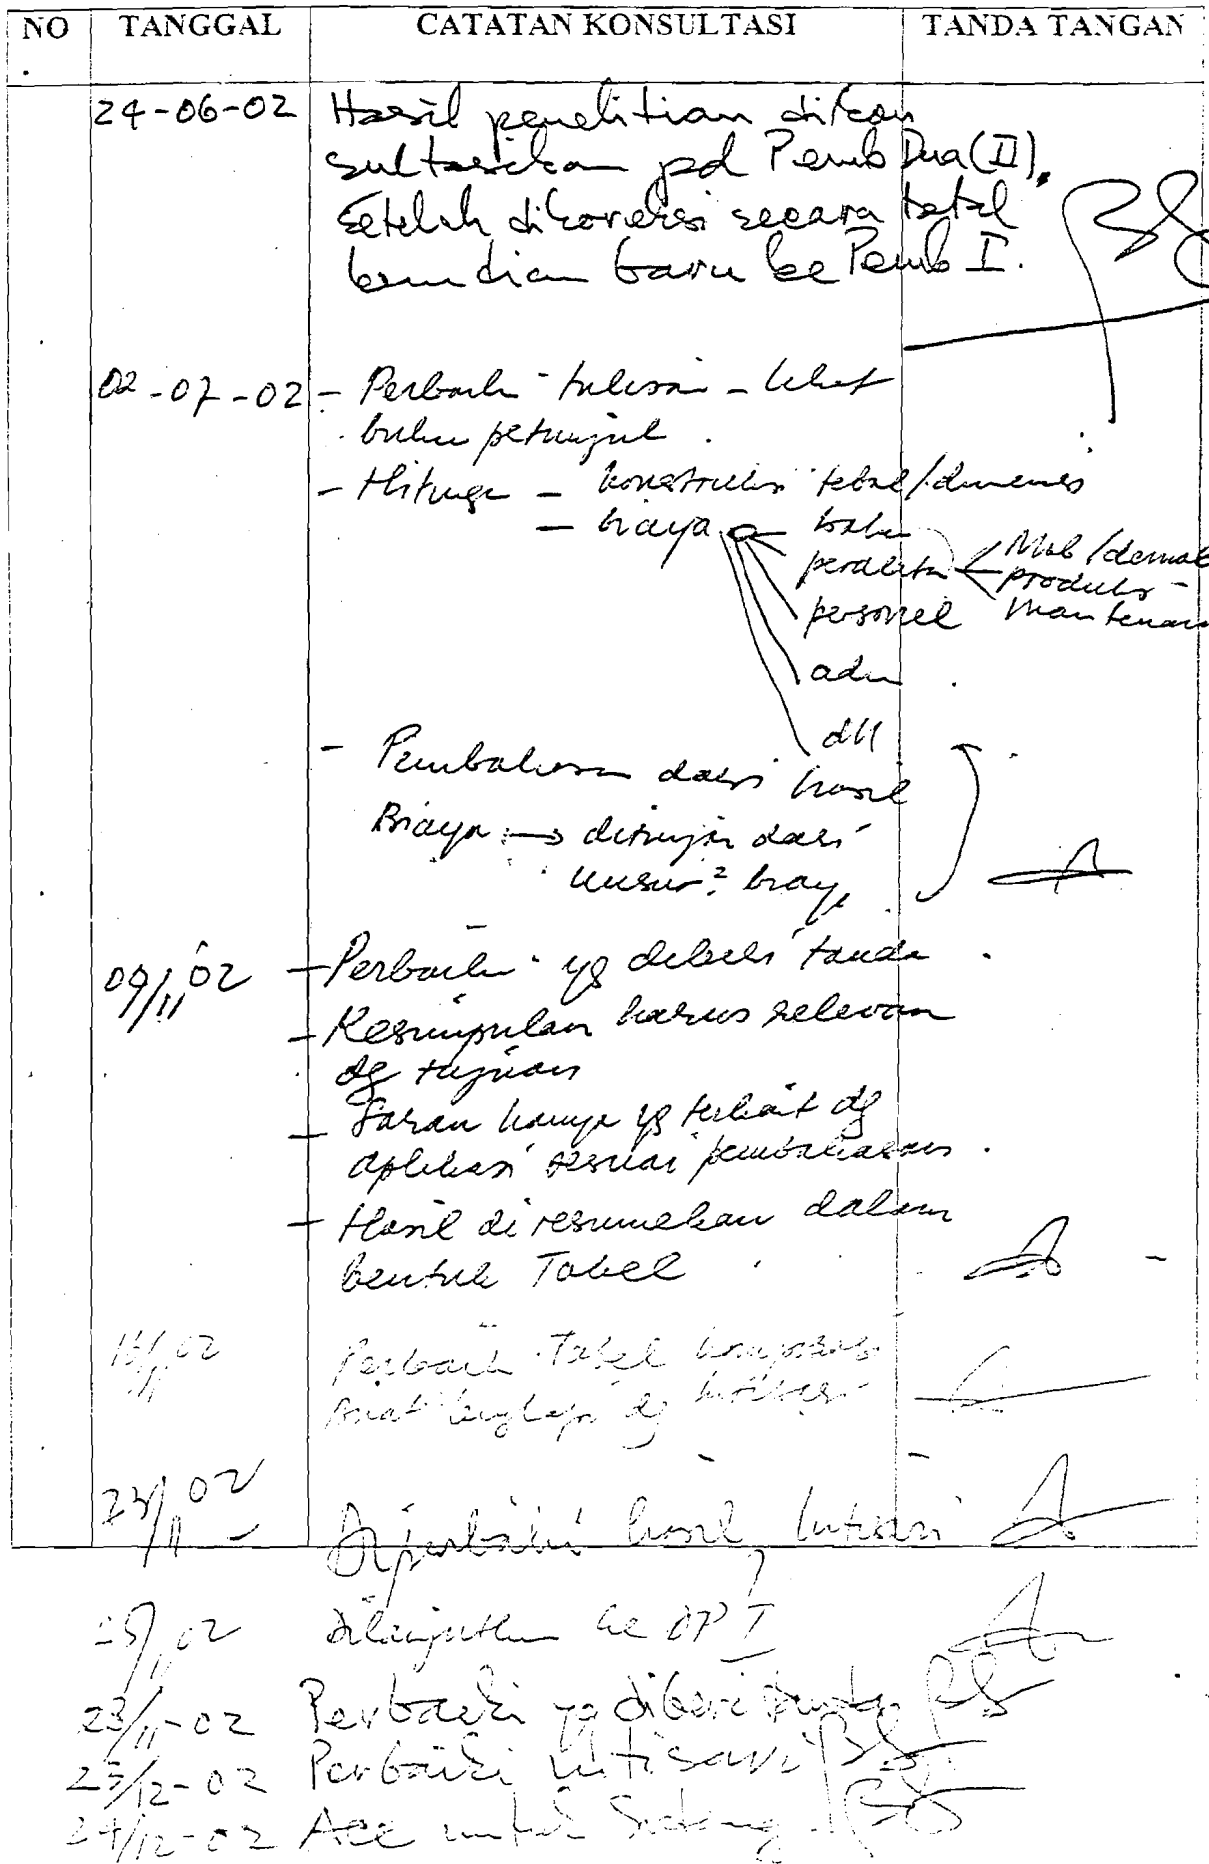 NO TANGGAL CATATAN KONSULTASI TANDA TANGAN
24-06-02 Hasil penelitian dikon
sultasikan pd Pemb Dua (II).
Setelah dikoreksi secara total
kemudian baru ke Pemb I.
02-07-02 - Perbaiki tulisan - lihat
buku petunjuk.
- Hitung - konstruksi tebal/dimensi
- biaya bahan
peralatan Mob/demob
produksi
personel maintenan
adm
dll
- Pembahasan dari hasil
Biaya → ditinjau dari
unsur² biaya
09/11 02 - Perbaiki yg diberi tanda
- Kesimpulan harus relevan
dg tujuan
- Saran hanya yg terkait dg
aplikasi sesuai pembahasan.
- Hasil di resumekan dalam
bentuk Tabel
16/11 02 Perbaiki Tabel
Buat lengkap dg intisari
23/11 02 Diperbaiki hasil intisari
25/11 02 Dilanjutkan ke DP I
28/11-02 Perbaiki yg diberi tanda
23/12-02 Perbaiki intisari
24/12-02 Acc untuk